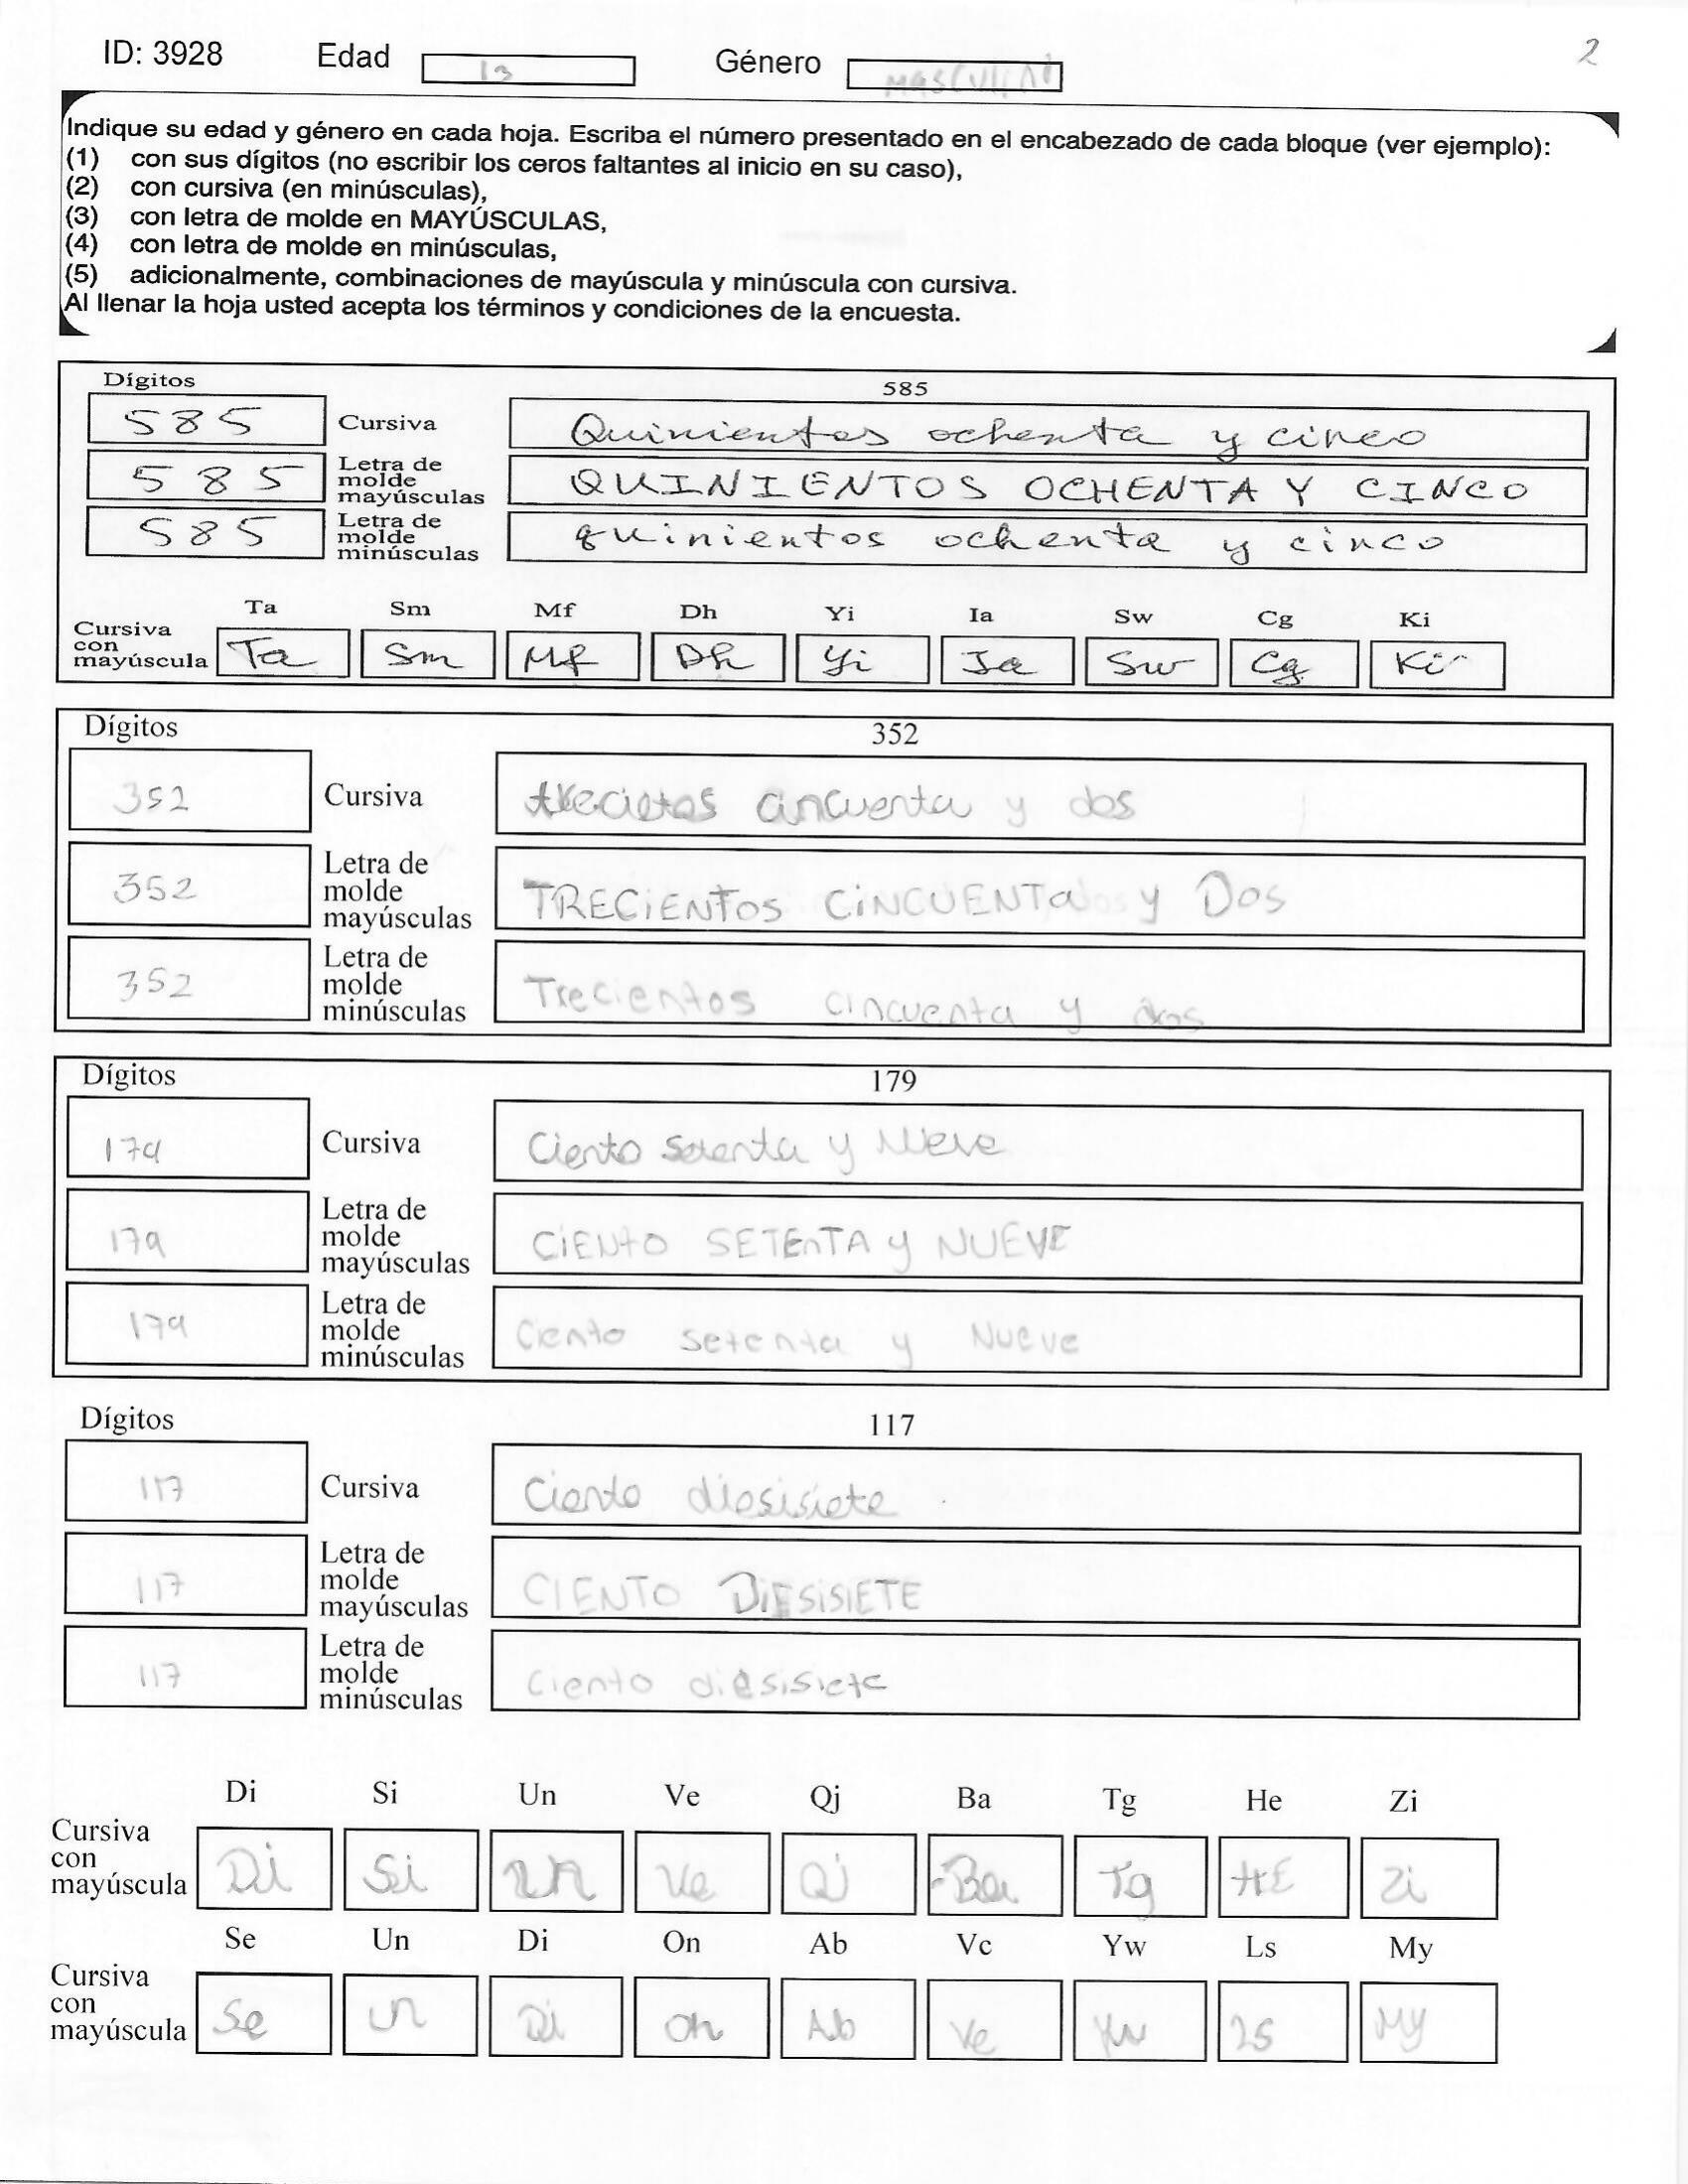 ID: 3928 Edad 13 Género MASCULINO 2
Indique su edad y género en cada hoja. Escriba el número presentado en el encabezado de cada bloque (ver ejemplo):
(1) con sus dígitos (no escribir los ceros faltantes al inicio en su caso),
(2) con cursiva (en minúsculas),
(3) con letra de molde en MAYÚSCULAS,
(4) con letra de molde en minúsculas,
(5) adicionalmente, combinaciones de mayúscula y minúscula con cursiva.
Al llenar la hoja usted acepta los términos y condiciones de la encuesta.
Dígitos 585
585 Cursiva Quinientos ochenta y cinco
585 Letra de molde mayúsculas QUINIENTOS OCHENTA Y CINCO
585 Letra de molde minúsculas quinientos ochenta y cinco
Ta Sm Mf Dh Yi Ia Sw Cg Ki
Cursiva con mayúscula Ta Sm Mf Dh Yi Ia Sw Cg Ki
Dígitos 352
352 Cursiva trecietos cincuenta y dos
352 Letra de molde mayúsculas TRECiENTos CiNCUENTa y Dos
352 Letra de molde minúsculas Trecientos cincuenta y dos
Dígitos 179
179 Cursiva Ciento setenta y nueve
179 Letra de molde mayúsculas CiENtO SETEnTA y NUEVE
179 Letra de molde minúsculas Ciento setenta y Nueve
Dígitos 117
117 Cursiva Ciento diesisiete
117 Letra de molde mayúsculas CIENTO DiESiSIETE
117 Letra de molde minúsculas Ciento diesisiete
Di Si Un Ve Qj Ba Tg He Zi
Cursiva con mayúscula Di Si Un Ve Qj Ba Tg HE Zi
Se Un Di On Ab Vc Yw Ls My
Cursiva con mayúscula Se Un Di On Ab Ve Yw Ls My